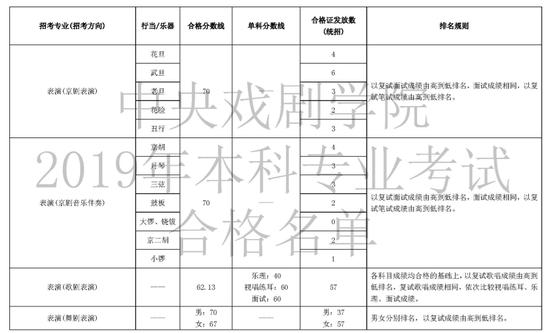 招考专业(招考方向) 行当/乐器 合格分数线 单科分数线 合格证发放数(统招) 排名规则
表演(京剧表演) 70 —— 以复试面试成绩由高到低排名，面试成绩相同，以复试笔试成绩由高到低排名。
花旦 4
武旦 6
老旦 3
花脸 2
丑行 3
表演(京剧音乐伴奏) 70 —— 以复试面试成绩由高到低排名，面试成绩相同，以复试笔试成绩由高到低排名。
京胡 4
月琴 3
三弦 3
鼓板 2
大锣、铙钹 0
京二胡 2
小锣 1
表演(歌剧表演) —— 62.13 乐理：40 视唱练耳：60 面试：60 57 各科目成绩均合格的基础上，以复试歌唱成绩由高到低排名，复试歌唱成绩相同，依次比较视唱练耳、乐理、面试成绩。
表演(舞剧表演) —— 男：70 女：67 —— 男：37 女：57 男女分别排名，以复试成绩由高到低排名。
中央戏剧学院
2019年本科专业考试
合格名单